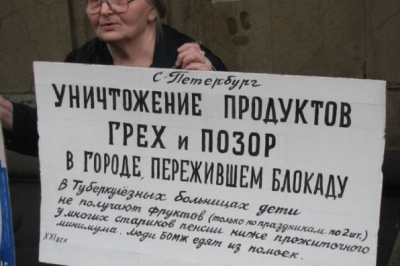 С-Петербург
УНИЧТОЖЕНИЕ ПРОДУКТОВ
ГРЕХ и ПОЗОР
В ГОРОДЕ, ПЕРЕЖИВШЕМ БЛОКАДУ
В Туберкулёзных больницах дети
не получают фруктов (только по праздникам по 2 шт.)
У многих стариков пенсии ниже прожиточного
минимума. люди БОМЖ едят из помоек.
XXI век